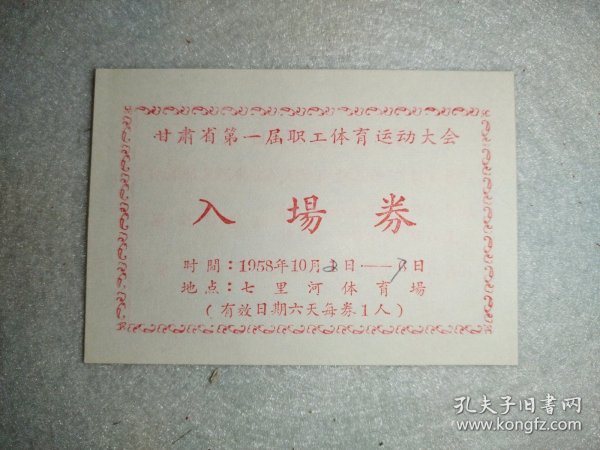 甘肃省第一届职工体育运动大会
入場券
时間：1958年10月2日——7日
地点：七里河体育場
（有效日期六天每券1人）
孔夫子旧书网
www.kongfz.com